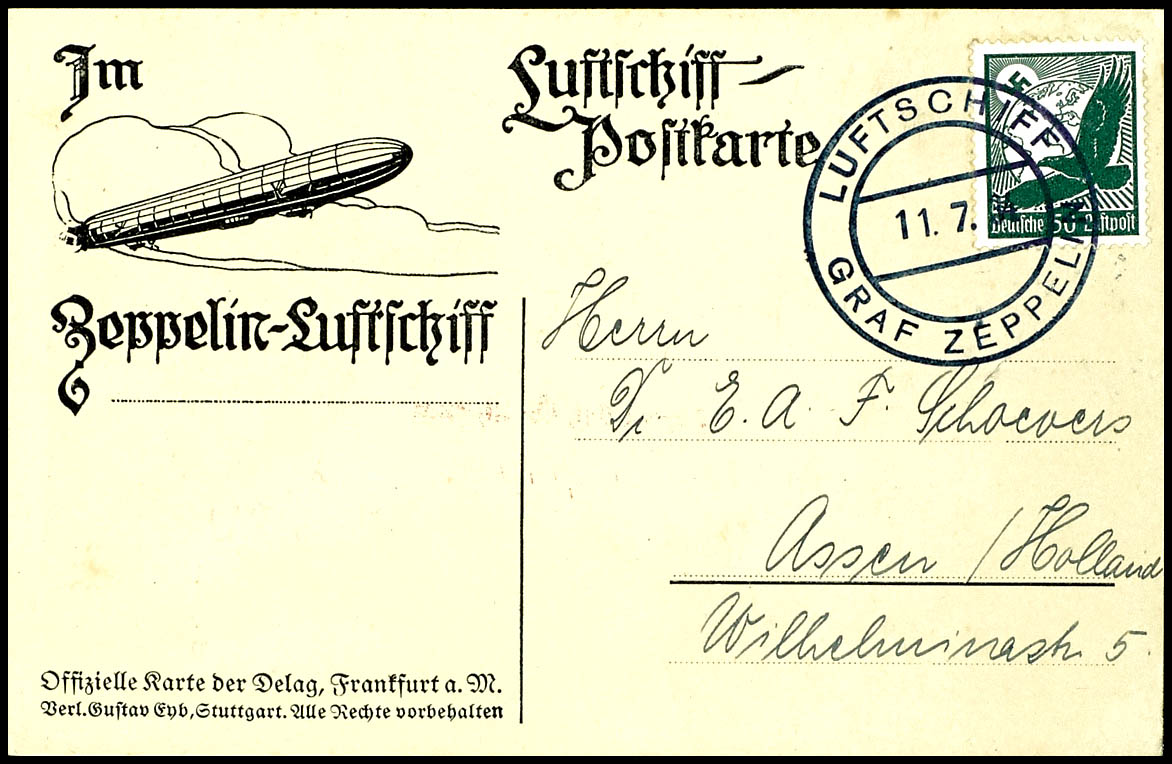 Im
Zeppelin-Luftschiff
Luftschiff-
Postkarte
LUFTSCHIFF
GRAF ZEPPELIN
11.7.
Deutsche 50 Luftpost
Herrn
Dr. E. A. F. Schoevers
Assen / Holland
Wilhelminastr. 5.
Offizielle Karte der Delag, Frankfurt a. M.
Verl. Gustav Eyb, Stuttgart. Alle Rechte vorbehalten